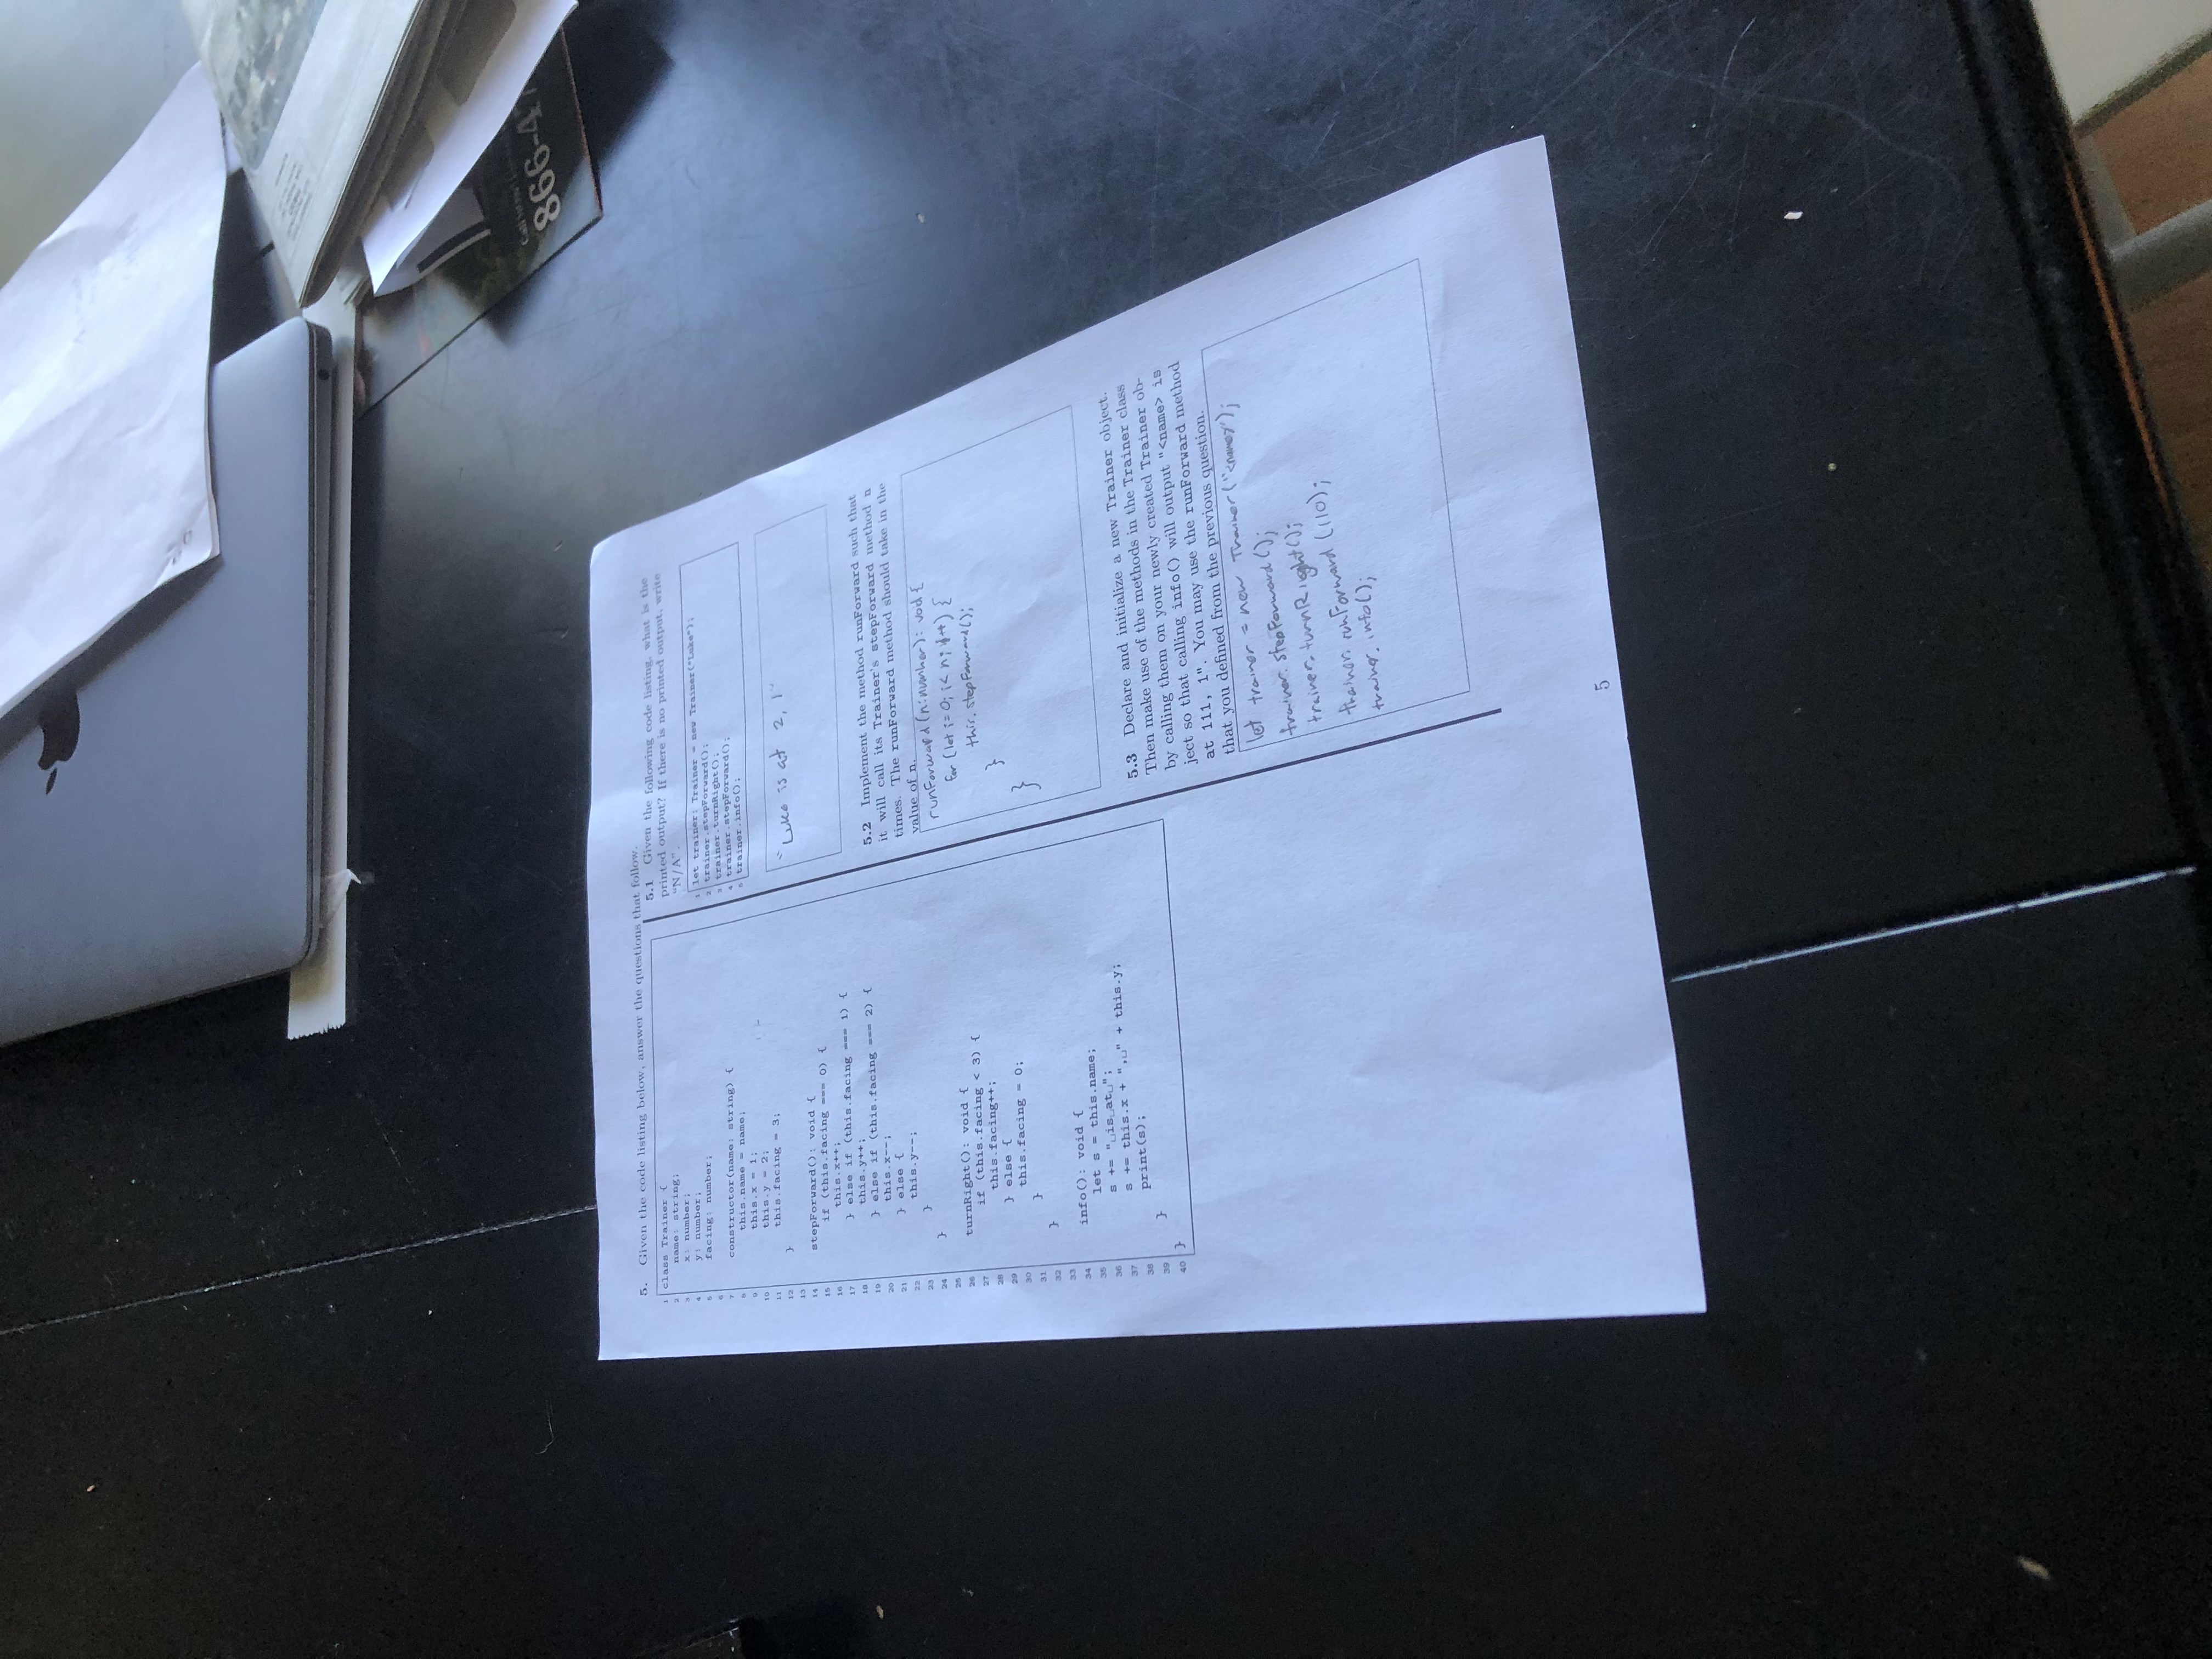 866-47
5. Given the code listing below, answer the questions that follow.
1 class Trainer {
2 name: string;
3 x: number;
4 y: number;
5 facing: number;
6
7 constructor(name: string) {
8 this.name = name;
9 this.x = 1;
10 this.y = 2;
11 this.facing = 3;
12 }
13
14 stepForward(): void {
15 if (this.facing === 0) {
16 this.x++;
17 } else if (this.facing === 1) {
18 this.y++;
19 } else if (this.facing === 2) {
20 this.x--;
21 } else {
22 this.y--;
23 }
24 }
25
26 turnRight(): void {
27 if (this.facing < 3) {
28 this.facing++;
29 } else {
30 this.facing = 0;
31 }
32 }
33
34 info(): void {
35 let s = this.name;
36 s += "␣is␣at␣";
37 s += this.x + ",␣" + this.y;
38 print(s);
39 }
40 }
5.1 Given the following code listing, what is the
printed output? If there is no printed output, write
"N/A".
1 let trainer: Trainer = new Trainer("Luke");
2 trainer.stepForward();
3 trainer.turnRight();
4 trainer.stepForward();
5 trainer.info();
"Luke is at 2, 1"
5.2 Implement the method runForward such that
it will call its Trainer's stepForward method n
times. The runForward method should take in the
value of n.
runForward(n:number): void {
for (let i=0; i<n; i++) {
this.stepForward();
}
}
5.3 Declare and initialize a new Trainer object.
Then make use of the methods in the Trainer class
by calling them on your newly created Trainer ob-
ject so that calling info() will output "<name> is
at 111, 1". You may use the runForward method
that you defined from the previous question.
let trainer = new Trainer("<name>");
trainer.stepForward();
trainer.turnRight();
trainer.runForward(110);
trainer.info();
5